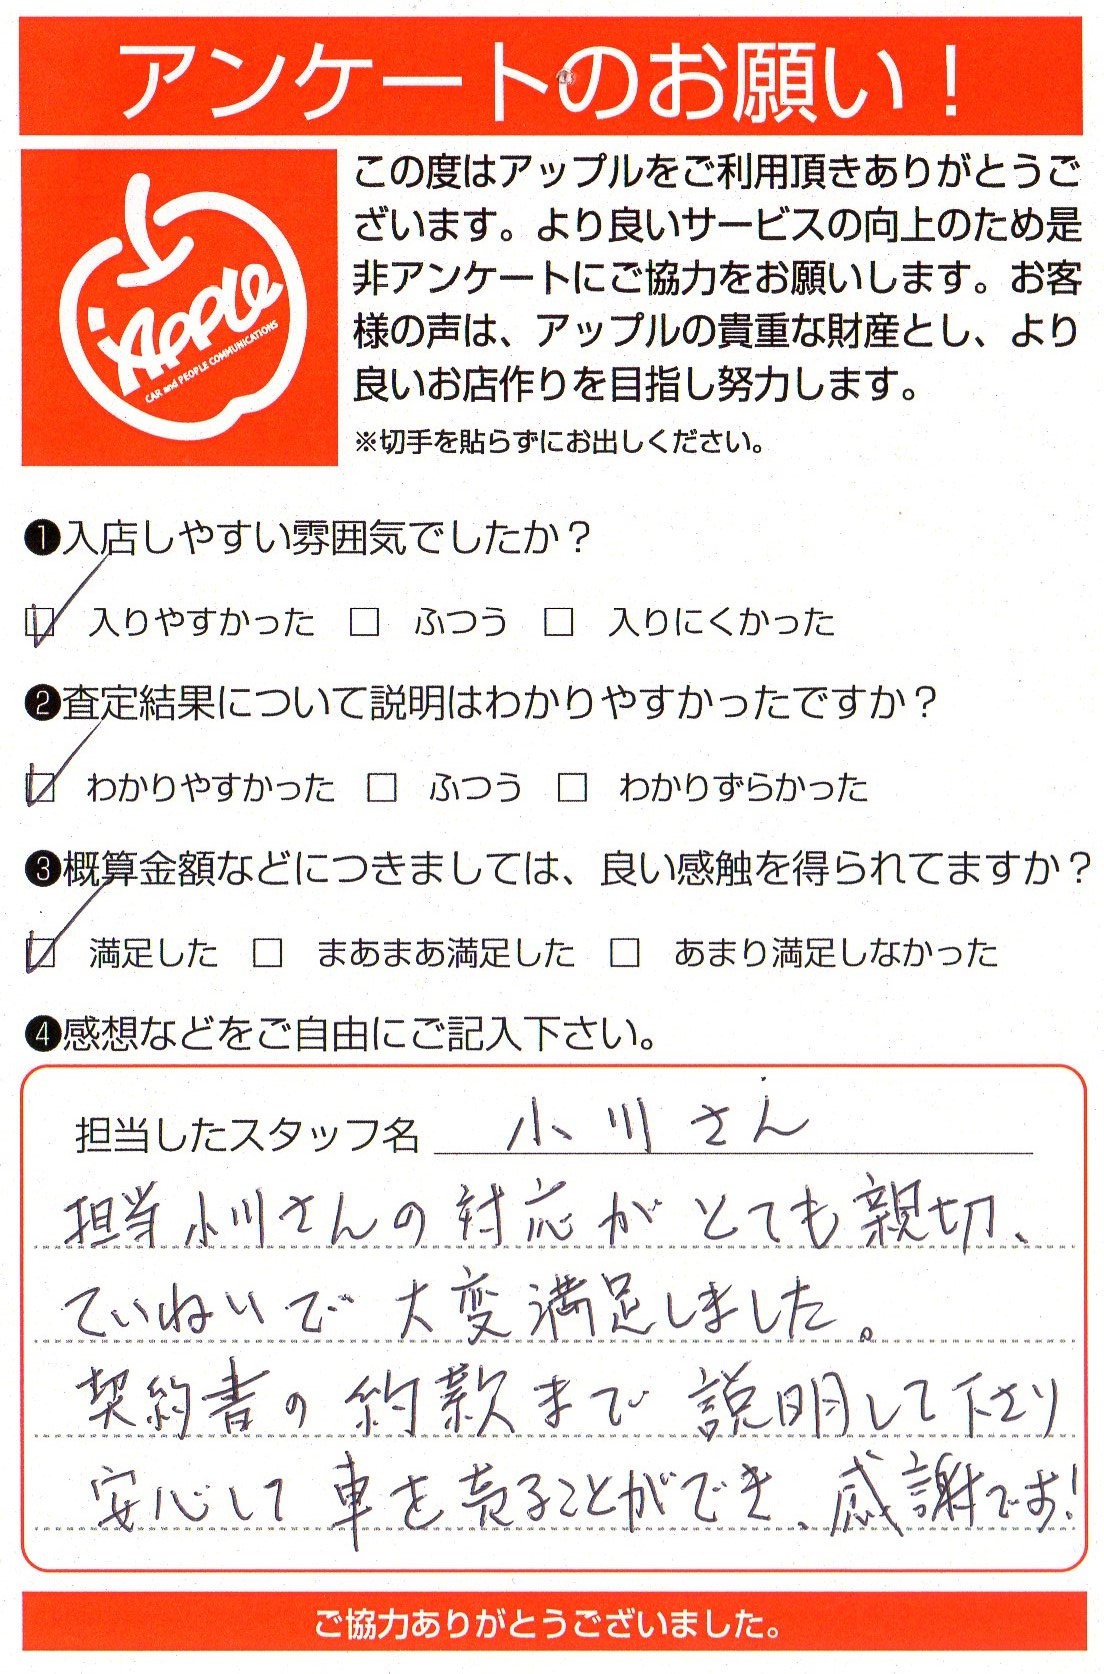 アンケートのお願い！
この度はアップルをご利用頂きありがとうご
ざいます。より良いサービスの向上のため是
非アンケートにご協力をお願いします。お客
様の声は、アップルの貴重な財産とし、より
良いお店作りを目指し努力します。
※切手を貼らずにお出しください。
APPLE
CAR and PEOPLE COMMUNICATIONS
❶入店しやすい雰囲気でしたか？
☑ 入りやすかった □ ふつう □ 入りにくかった
❷査定結果について説明はわかりやすかったですか？
☑ わかりやすかった □ ふつう □ わかりずらかった
❸概算金額などにつきましては、良い感触を得られてますか？
☑ 満足した □ まあまあ満足した □ あまり満足しなかった
❹感想などをご自由にご記入下さい。
担当したスタッフ名 小川さん
担当小川さんの対応がとても親切、
ていねいで大変満足しました。
契約書の約款まで説明して下さり
安心して車を売ることができ、感謝です！
ご協力ありがとうございました。